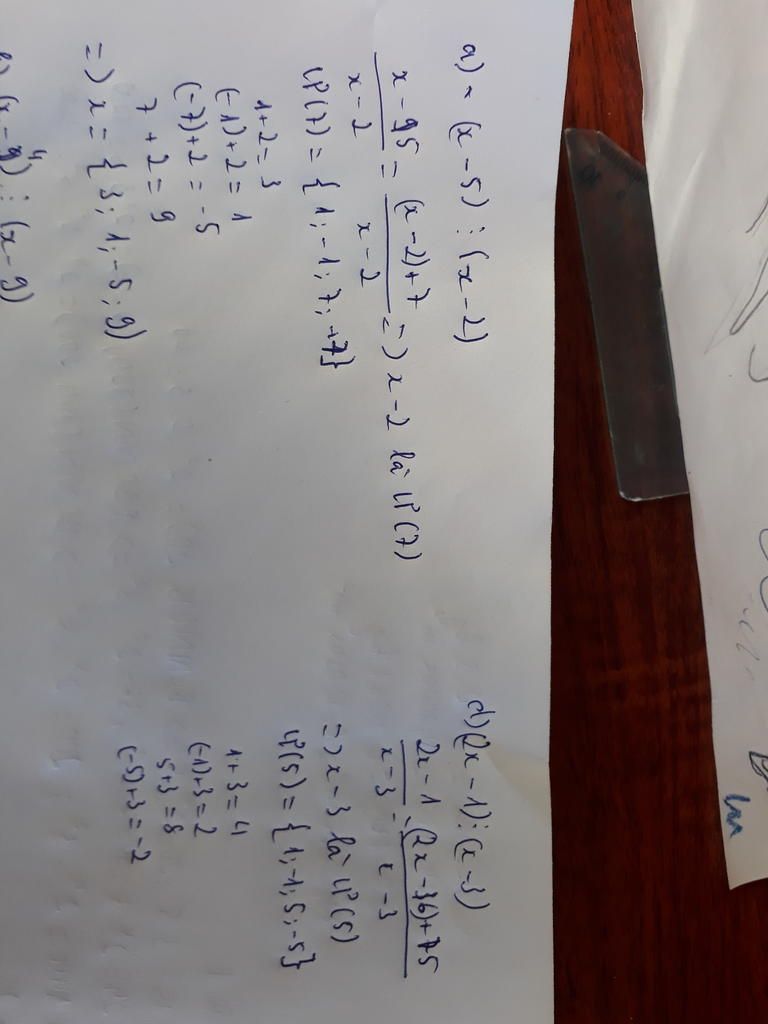 a) (x - 5) ⋮ (x - 2)
x - 5 / x - 2 = (x - 2) + 7 / x - 2 => x - 2 là Ư(7)
Ư(7) = { 1 ; -1 ; 7 ; -7 }
1 + 2 = 3
(-1) + 2 = 1
(-7) + 2 = -5
7 + 2 = 9
=> x = { 3 ; 1 ; -5 ; 9 )
(x - ) ⋮ (x - 9)
d) (2x - 1) ⋮ (x - 3)
2x - 1 / x - 3 = (2x - 6) + 5 / x - 3
=> x - 3 là Ư(5)
Ư(5) = { 1 ; -1 ; 5 ; -5 }
1 + 3 = 4
(-1) + 3 = 2
5 + 3 = 8
(-5) + 3 = -2